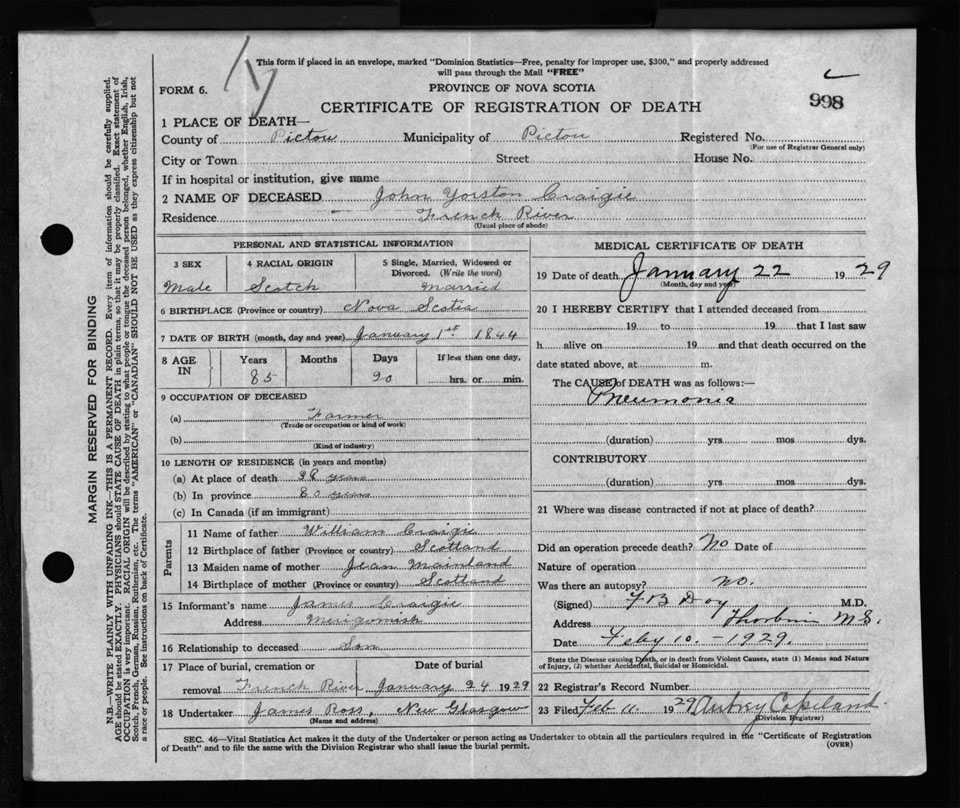 This form if placed in an envelope, marked "Dominion Statistics—Free, penalty for improper use, $300," and properly addressed
will pass through the Mail "FREE"
FORM 6.
PROVINCE OF NOVA SCOTIA
998
CERTIFICATE OF REGISTRATION OF DEATH
1 PLACE OF DEATH—
County of Pictou Municipality of Pictou Registered No.
(For use of Registrar General only)
City or Town Street House No.
If in hospital or institution, give name
2 NAME OF DECEASED John Yorston Craigie
Residence French River
(Usual place of abode)
PERSONAL AND STATISTICAL INFORMATION
3 SEX 4 RACIAL ORIGIN 5 Single, Married, Widowed or
Divorced. (Write the word)
Male Scotch Married
6 BIRTHPLACE (Province or country) Nova Scotia
7 DATE OF BIRTH (month, day and year) January 1st 1844
8 AGE IN Years Months Days If less than one day,
85 20 hrs. or min.
9 OCCUPATION OF DECEASED
(a) Farmer
(Trade or occupation or kind of work)
(b)
(Kind of industry)
10 LENGTH OF RESIDENCE (in years and months)
(a) At place of death years
(b) In province years
(c) In Canada (if an immigrant)
Parents
11 Name of father William Craigie
12 Birthplace of father (Province or country) Scotland
13 Maiden name of mother Jean Mainland
14 Birthplace of mother (Province or country) Scotland
15 Informant's name James Craigie
Address Merigomish
16 Relationship to deceased Son
17 Place of burial, cremation or Date of burial
removal French River January 24 1929
18 Undertaker James Ross, New Glasgow
(Name and address)
MEDICAL CERTIFICATE OF DEATH
19 Date of death January 22 1929
(Month, day and year)
20 I HEREBY CERTIFY that I attended deceased from
19 to 19 that I last saw
h alive on 19 and that death occurred on the
date stated above, at m.
The CAUSE of DEATH was as follows:—
Pneumonia
(duration) yrs. mos dys.
CONTRIBUTORY
(duration) yrs. mos dys.
21 Where was disease contracted if not at place of death?
Did an operation precede death? No Date of
Nature of operation
Was there an autopsy? no.
(Signed) F B Day M.D.
Address
Date Feby 10. - 1929.
State the Disease causing Death, or in death from Violent Causes, state (1) Means and Nature
of Injury, (2) whether Accidental, Suicidal or Homicidal.
22 Registrar's Record Number
23 Filed Feb 11 1929 Aubrey Copeland
(Division Registrar)
SEC. 46—Vital Statistics Act makes it the duty of the Undertaker or person acting as Undertaker to obtain all the particulars required in the "Certificate of Registration
of Death" and to file the same with the Division Registrar who shall issue the burial permit.
(OVER)
MARGIN RESERVED FOR BINDING
N.B.—WRITE PLAINLY WITH UNFADING INK—THIS IS A PERMANENT RECORD. Every item of information should be carefully supplied.
AGE should be stated EXACTLY. PHYSICIANS should STATE CAUSE OF DEATH in plain terms, so that it may be properly classified. Exact statement of
OCCUPATION is very important. RACIAL ORIGIN will be described by stating to what people or tongue the deceased person belonged, whether English, Irish,
Scotch, French, German, Russian, Ruthenian, etc. The terms "AMERICAN" or "CANADIAN" SHOULD NOT BE USED as they express citizenship but not
a race or people. See instructions on back of Certificate.